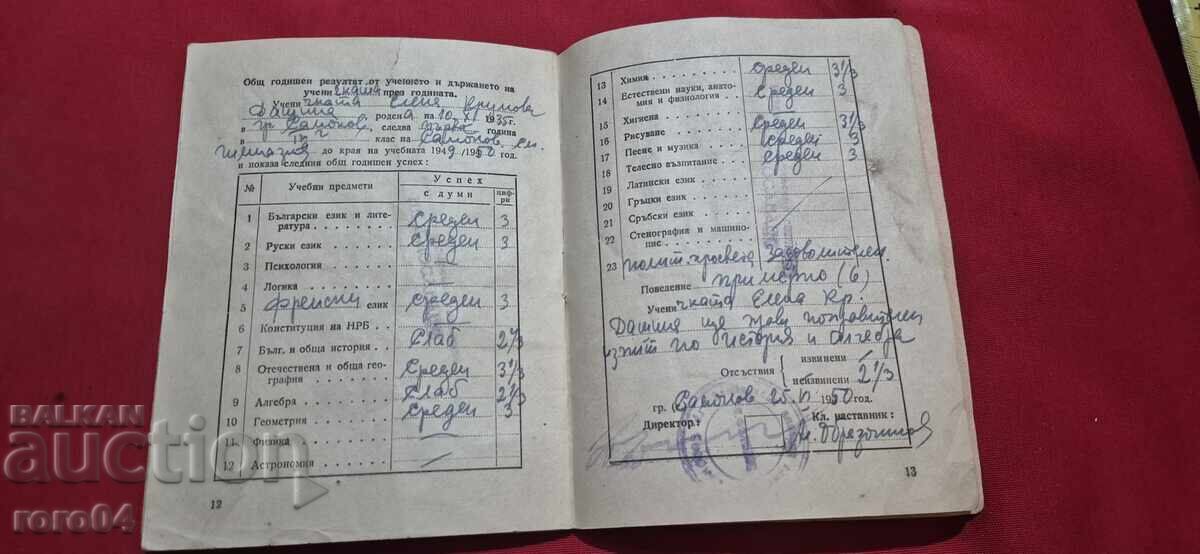 Общ годишен резултат от учението и държането на
учени чката през годината.
Учени чката Елена Крумова
Дашина родена на 10. XI 1935 г.
в гр. Самоков, следва година
в клас на Самоков. см.
гимназия до края на учебната 1949/1950 год.
и показа следния общ годишен успех:
№ Учебни предмети Успех
с думи цифри
1 Български език и литература Среден 3
2 Руски език Среден 3
3 Психология
4 Логика
5 Френски език Среден 3
6 Конституция на НРБ
7 Бълг. и обща история Слаб 2 1/3
8 Отечествена и обща география Среден 3 1/3
9 Алгебра Слаб 2 1/3
10 Геометрия Среден 3
11 Физика
12 Астрономия
12
13 Химия Среден 3 1/3
14 Естествени науки, анатомия и физиология Среден 3
15 Хигиена
16 Рисуване Среден 3 1/3
17 Песне и музика Среден 3
18 Телесно възпитание Среден 3
19 Латински език
20 Гръцки език
21 Сръбски език
22 Стенография и машинопис
23 полит. просвета Задоволителен.
Поведение примерно (6)
Учени чката Елена Кр.
Дашина ще държи поправителен
изпит по история и алгебра
Отсъствия извинени
неизвинени 2 1/3
гр. Самоков 25. VI 1950 год.
Директор: Кл. наставник:
13
BALKAN
auction
roro04